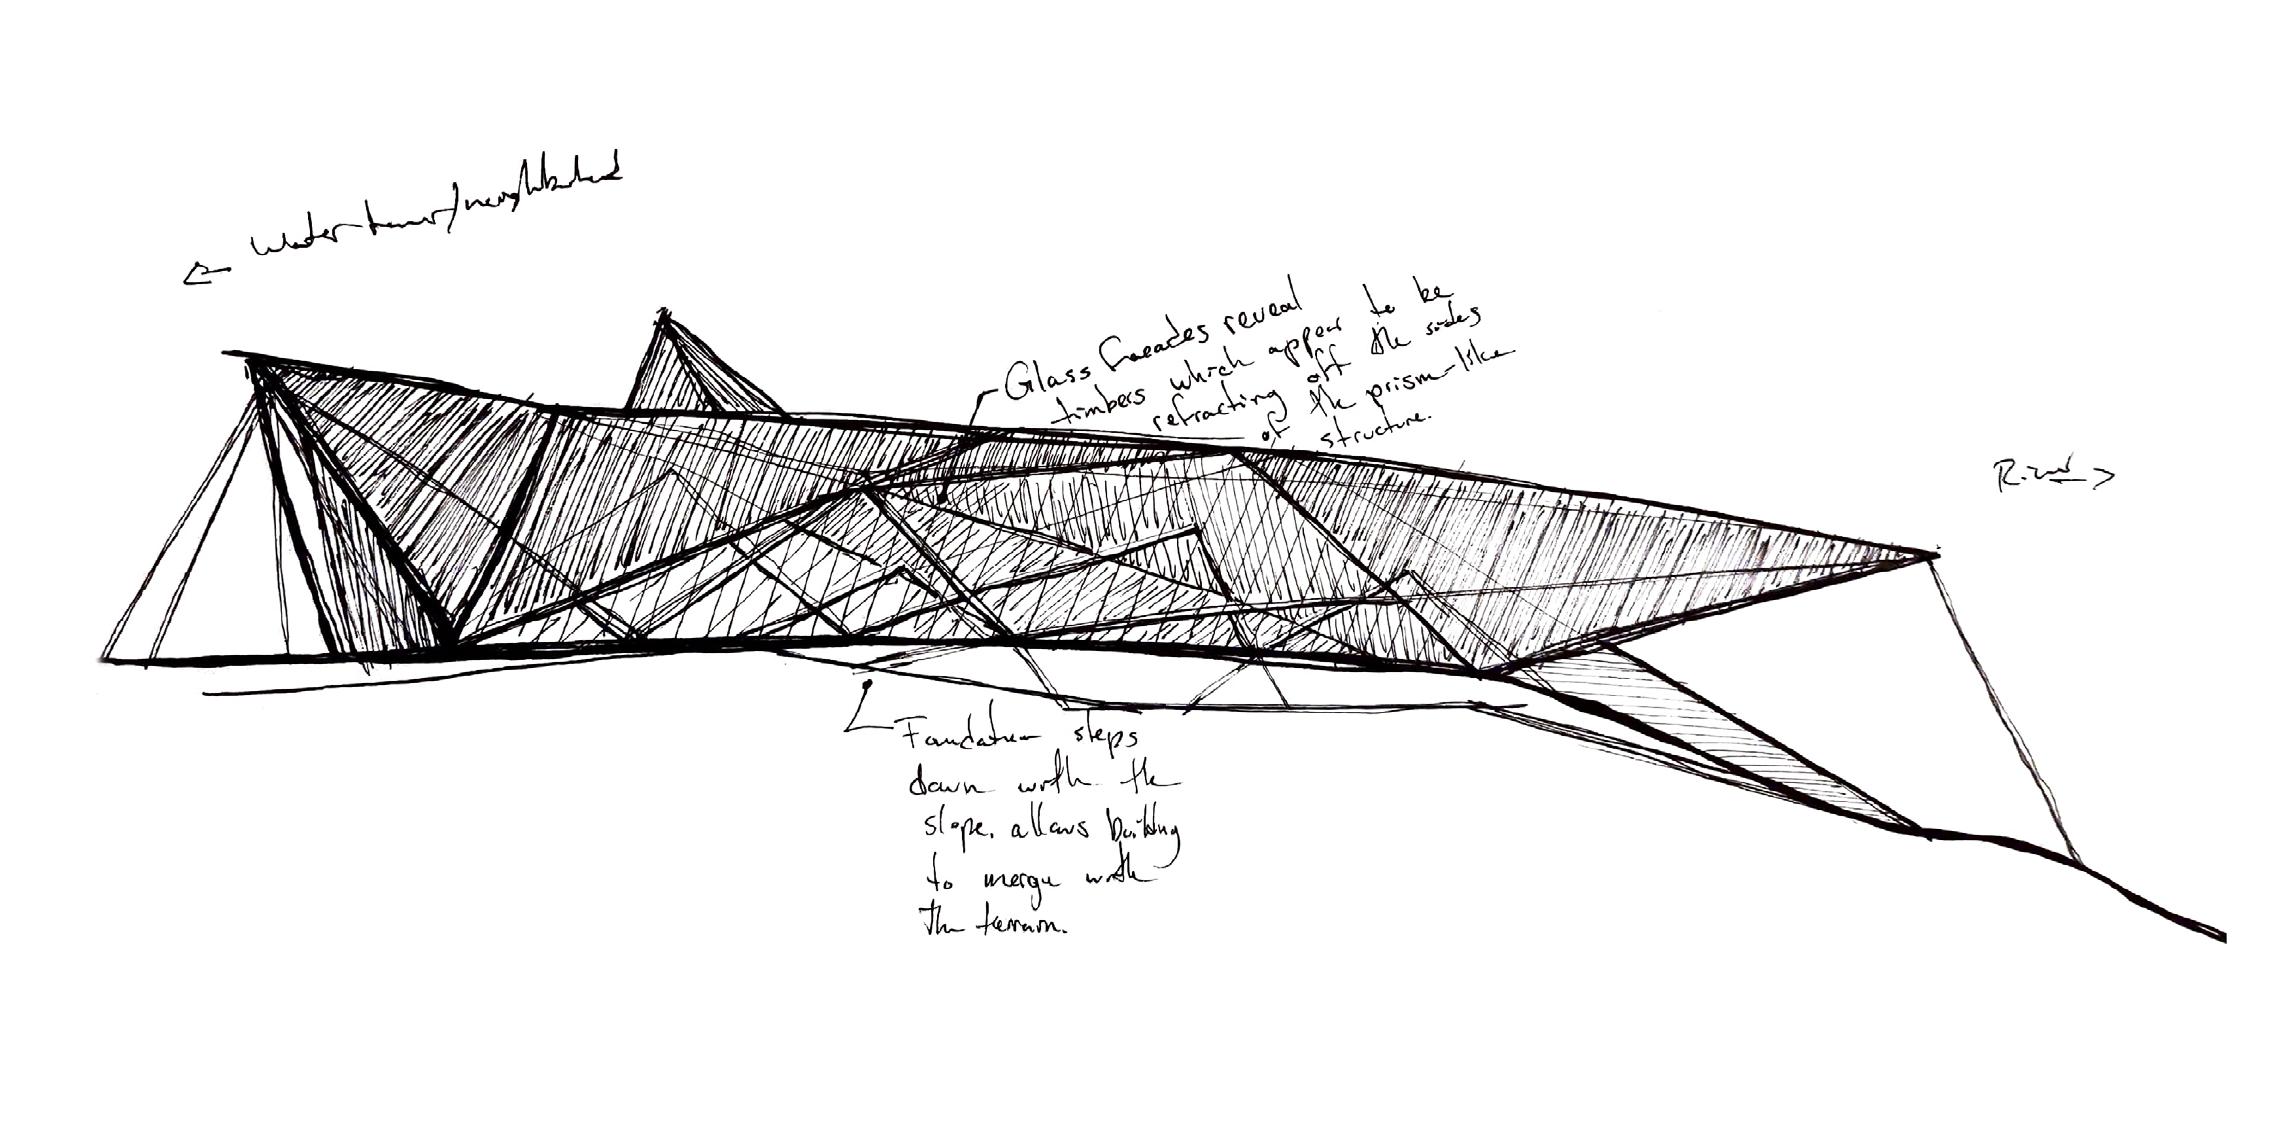 Water tower/neighborhood
Glass facades reveal
timbers which appear to be
refracting off the sides
of the prism-like
structure.
River
Foundation steps
down with the
slope. allows building
to merge with
the terrain.